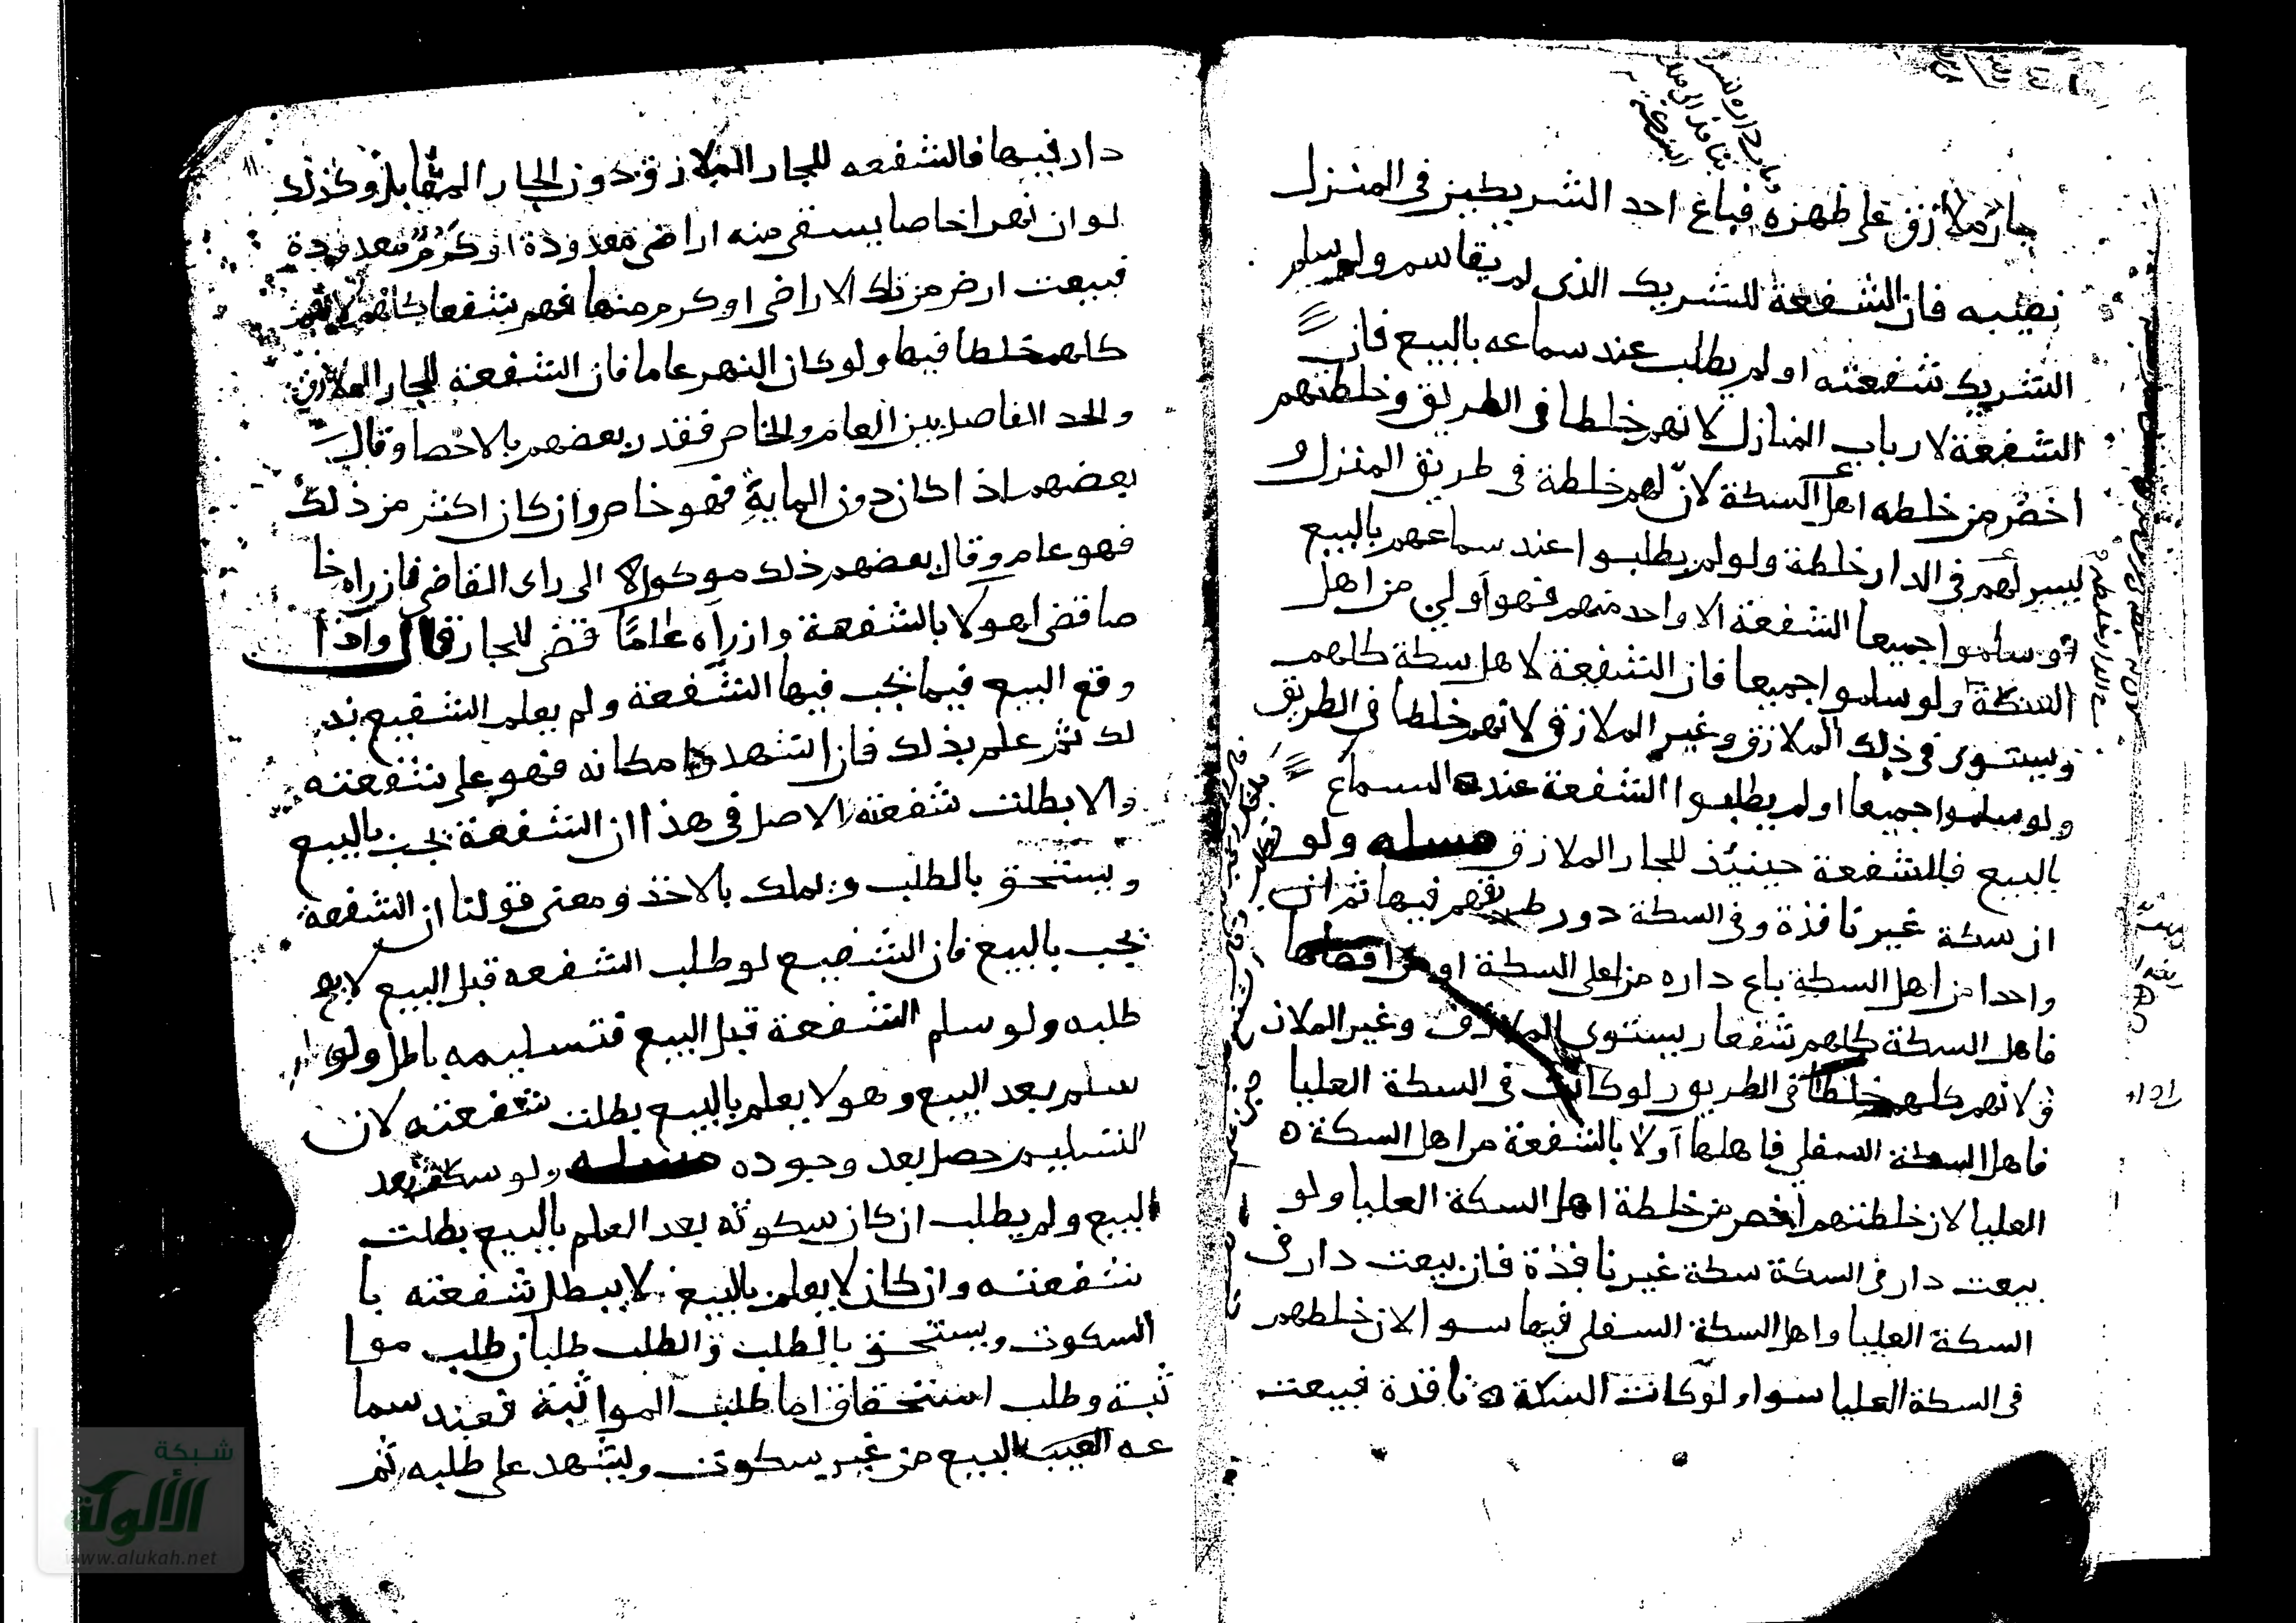 جار ملازق على ظهره فباع احد الشريكين في المنزل
نصيبه فان الشفعة للشريك الذي لم يقاسم ولو سلم
الشريك شفعته او لم يطلب عند سماعه بالبيع فان
الشفعة لارباب المنازل لانهم خلطا في الطريق وخلطتهم
اخص من خلطه اهل السكة لان لهم خلطة في طريق المنزل و
ليس لهم في الدار خلطة ولو لم يطلبوا عند سماعهم بالبيع
او سلموا جميعا الشفعة الا واحد منهم فهو اولى من اهل
السكة ولو سلموا جميعا فان الشفعة لاهل سكة كلهم
ويستوى في ذلك الملازق وغير الملازق لانهم خلطا في الطريق
ولو سلموا جميعا او لم يطلبوا الشفعة عند السماع
بالبيع فالشفعة حينيذ للجار الملازق مسله ولو
ان سكة غير نافذة وفي السكة دور طريقهم فيها ثم ان
واحدا من اهل السكة باع داره من اعلى السكة او من اقصاها
فاهل السكة كلهم شفعا ويستوى الملازق وغير الملاز
ق لانهم كلهم خلطا في الطريق ولو كانت في السكة العليا
فاهل السكة السفلى فاهلها اولا بالشفعة من اهل السكة
العليا لان خلطتهم اخص من خلطة اهل السكة العليا ولو
بيعت دار في السكة سكة غير نافذة فان بيعت دار في
السكة العليا واهل السكة السفلى فيها سوا لان خلطهم
في السكة العليا سواء ولو كانت السكة نافذة فبيعت
دار فيها فالشفعه للجار الملازق دون الجار المقابل وكذلك
لو ان نهرا خاصا يسقى منه اراضى معدودة او كروم معدودة
فبيعت ارض من تلك الاراضى او كرم منها فهم شفعا كلهم لانهم
كلهم خلطا فيها ولو كان النهر عاما فان الشفعة للجار الملازق
والحد الفاصل بين العام والخاص فقدر بعضهم بالاحصا وقال
بعضهم اذا كان دون الماية فهو خاص وان كان اكثر من ذلك
فهو عام وقال بعضهم ذلك موكولا الى راى القاضي فان راه خا
صا قضى لهولا بالشفعة وان رآه عامًا قضى للجار قال واذا
وقع البيع فيما تجب فيها الشفعة ولم يعلم الشفيع بذ
لك ثم علم بذلك فان اشهد مكانه فهو على شفعته
والا بطلت شفعته الاصل في هذا ان الشفعة تجب بالبيع
ويستحق بالطلب وتملك بالاخذ ومعنى قولنا ان الشفعة
تجب بالبيع فان الشفيع لو طلب الشفعه قبل البيع لا يصح
طلبه ولو سلم الشفعة قبل البيع فتسليمه باطل ولو
سلم بعد البيع وهو لا يعلم بالبيع بطلت شفعته لان
التسليم حصل بعد وجوده مسله ولو سكت بعد
البيع ولم يطلب ان كان سكوته بعد العلم بالبيع بطلت
شفعته وان كان لا يعلم بالبيع لا يبطل شفعته با
السكوت ويستحق بالطلب والطلب طلبان طلب موا
ثبة وطلب استحقاق اما طلب المواثبة فعند سما
عه البيع من غير سكوت ويشهد على طلبه ثم
شبكة
الألوكة
www.alukah.net